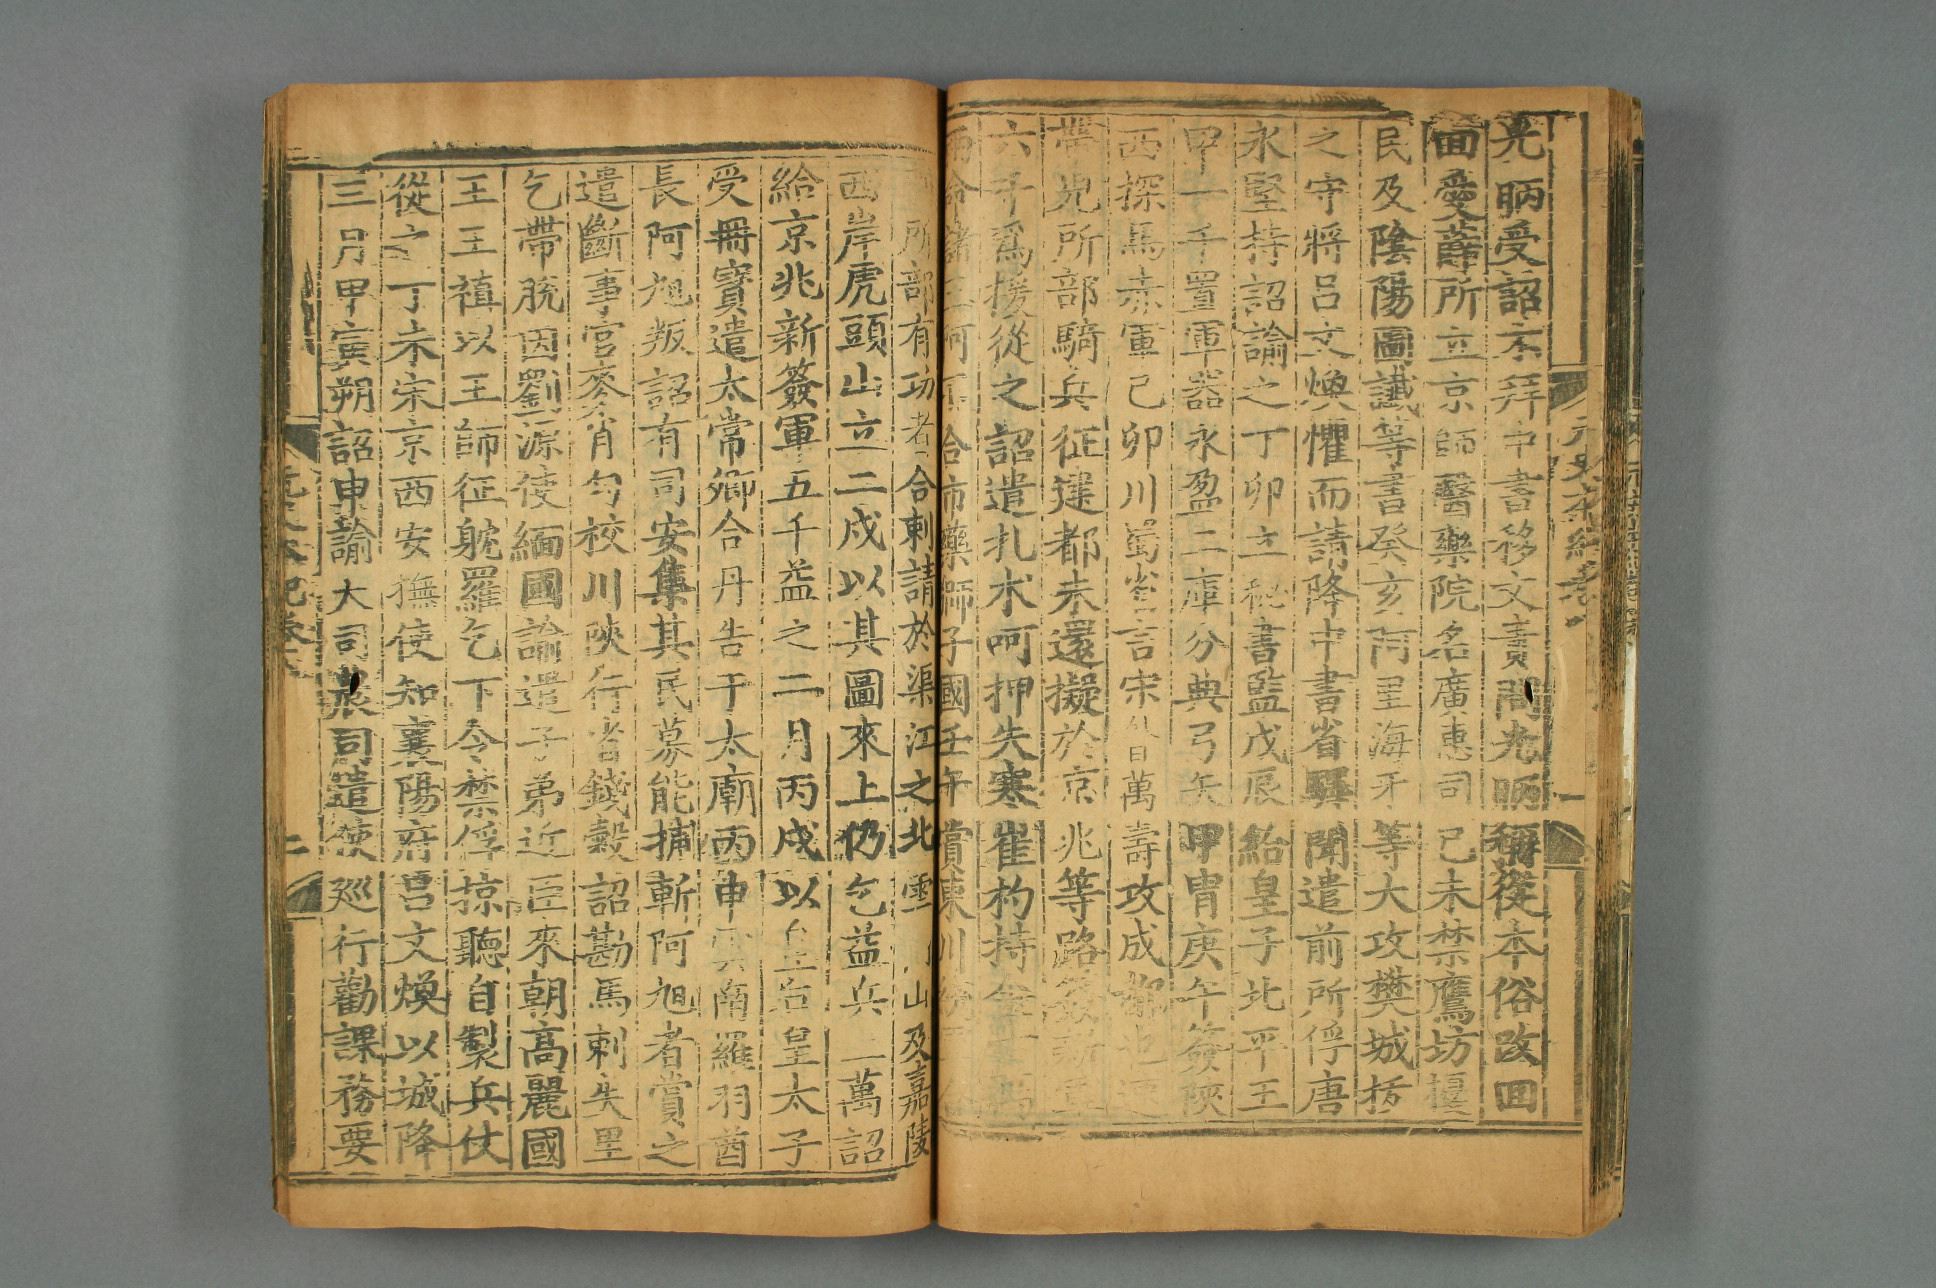 光昞受詔不拜中書移文責問光昞稱從本俗改回
回愛薛所立京師醫藥院名廣惠司己未禁鷹坊擾
民及陰陽圖讖等書癸亥阿里海牙等大攻樊城拔
之守將呂文煥懼而請降中書省驛聞遣前所俘唐
永堅持詔諭之丁卯立秘書監戊辰給皇子北平王
甲一千置軍器永盈二庫分典弓矢甲胄庚午簽陝
西探馬赤軍己卯川蜀省言宋昝萬壽攻成都也速
帶兒所部騎兵征建都未還擬於京兆等路簽新軍
六千爲援從之詔遣扎朮呵押失寒崔杓持金十萬
兩命諸王阿不合市藥獅子國壬午賞東川
所部有功者合剌請於渠江之北雲門山及嘉陵
西岸虎頭山立二戍以其圖來上仍乞益兵二萬詔
給京兆新簽軍五千益之二月丙戌以皇后皇太子
受冊寶遣太常卿合丹告于太廟丙申雲南羅羽酋
長阿旭叛詔有司安集其民募能捕斬阿旭者賞之
遣斷事官麥肖勾校川陝行省錢穀詔勘馬剌失里
乞帶脫因劉源使緬國諭遣子弟近臣來朝高麗國
王王禃以王師征躭羅乞下令禁俘掠聽自製兵仗
從之丁未宋京西安撫使知襄陽府呂文煥以城降
三月甲寅朔詔申諭大司農司遣使廵行勸課務要
二